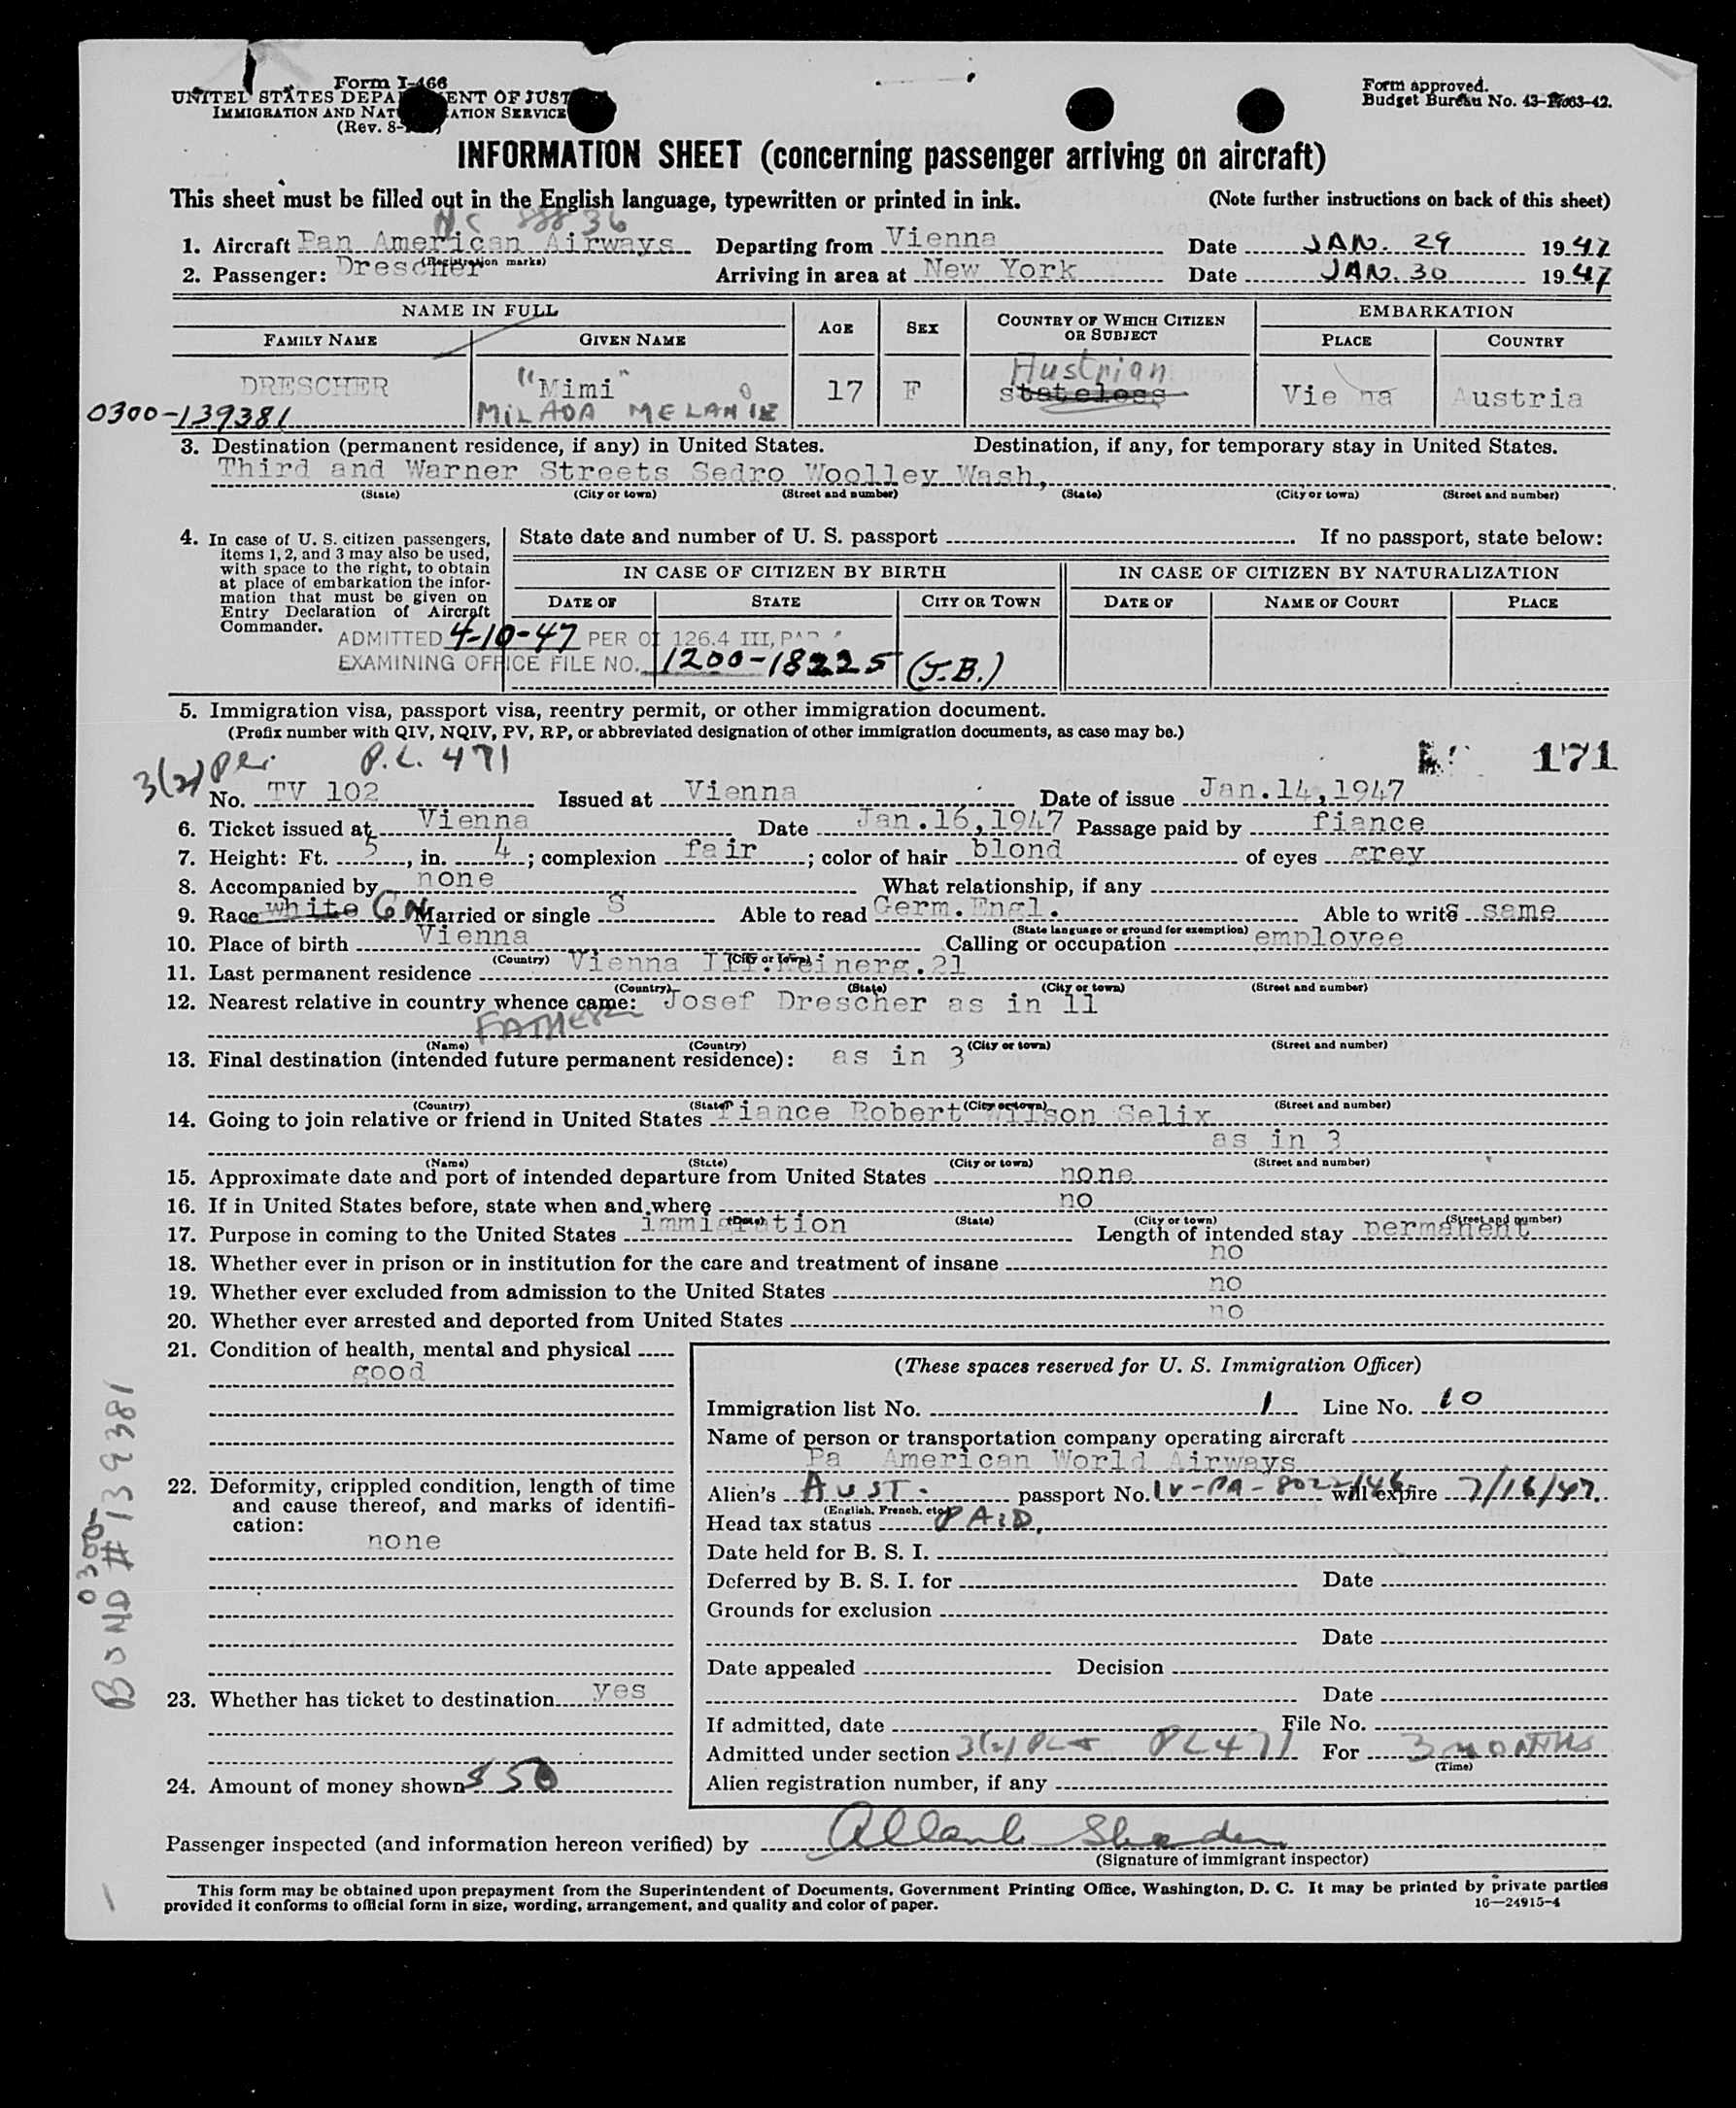 Form I-466
UNITED STATES DEPA ENT OF JUST
IMMIGRATION AND NAT ATION SERVICE
(Rev. 8-
Form approved.
Budget Bureau No. 43- 42.
INFORMATION SHEET (concerning passenger arriving on aircraft)
This sheet must be filled out in the English language, typewritten or printed in ink. (Note further instructions on back of this sheet)
NC 88836
1. Aircraft Pan American Airways Departing from Vienna Date JAN. 29 1947
(Registration marks)
2. Passenger: Drescher Arriving in area at New York Date JAN. 30 1947
NAME IN FULL AGE SEX COUNTRY OF WHICH CITIZEN OR SUBJECT EMBARKATION
FAMILY NAME GIVEN NAME PLACE COUNTRY
Austrian
DRESCHER "Mimi" 17 F stateless Vie na Austria
0300-139381 MILADA MELANIE
3. Destination (permanent residence, if any) in United States. Destination, if any, for temporary stay in United States.
Third and Warner Streets Sedro Woolley Wash,
(State) (City or town) (Street and number) (State) (City or town) (Street and number)
4. In case of U. S. citizen passengers, items 1, 2, and 3 may also be used, with space to the right, to obtain at place of embarkation the information that must be given on Entry Declaration of Aircraft Commander.
State date and number of U. S. passport If no passport, state below:
IN CASE OF CITIZEN BY BIRTH IN CASE OF CITIZEN BY NATURALIZATION
DATE OF STATE CITY OR TOWN DATE OF NAME OF COURT PLACE
ADMITTED 4-10-47 PER OI 126.4 III,
EXAMINING OFFICE FILE NO. 1200-18225 (J.B.)
5. Immigration visa, passport visa, reentry permit, or other immigration document.
(Prefix number with QIV, NQIV, PV, RP, or abbreviated designation of other immigration documents, as case may be.)
3(2) per P.L. 471 171
No. TV 102 Issued at Vienna Date of issue Jan.14,1947
6. Ticket issued at Vienna Date Jan.16,1947 Passage paid by fiance
7. Height: Ft. 5, in. 4; complexion fair; color of hair blond of eyes grey
8. Accompanied by none What relationship, if any
9. Race white GN Married or single S Able to read Germ.Engl. Able to write same
(State language or ground for exemption)
10. Place of birth Vienna Calling or occupation employee
(Country) (City or town)
11. Last permanent residence Vienna III. einerg.21
(Country) (State) (City or town) (Street and number)
12. Nearest relative in country whence came: Josef Drescher as in 11
FATHER
(Name) (Country) (City or town) (Street and number)
13. Final destination (intended future permanent residence): as in 3
(Country) (State) (City or town) (Street and number)
14. Going to join relative or friend in United States fiance Robert Wilson Selix
as in 3
(Name) (State) (City or town) (Street and number)
15. Approximate date and port of intended departure from United States none
16. If in United States before, state when and where no
(Date) (State) (City or town) (Street and number)
17. Purpose in coming to the United States immigration Length of intended stay permanent
18. Whether ever in prison or in institution for the care and treatment of insane no
19. Whether ever excluded from admission to the United States no
20. Whether ever arrested and deported from United States no
21. Condition of health, mental and physical
good
22. Deformity, crippled condition, length of time and cause thereof, and marks of identification:
none
23. Whether has ticket to destination yes
24. Amount of money shown $50
0300
BOND # 139381
(These spaces reserved for U. S. Immigration Officer)
Immigration list No. 1 Line No. 10
Name of person or transportation company operating aircraft
Pa American World Airways
Alien's AUST. passport No. IV-PA-8022/46 will expire 7/16/47.
(English, French, etc.)
Head tax status PAID.
Date held for B. S. I.
Deferred by B. S. I. for Date
Grounds for exclusion
Date
Date appealed Decision
Date
If admitted, date File No.
Admitted under section 3(2) PL 471 For 3 MONTHS
(Time)
Alien registration number, if any
Passenger inspected (and information hereon verified) by
(Signature of immigrant inspector)
This form may be obtained upon prepayment from the Superintendent of Documents, Government Printing Office, Washington, D. C. It may be printed by private parties
provided it conforms to official form in size, wording, arrangement, and quality and color of paper. 16—24915-4